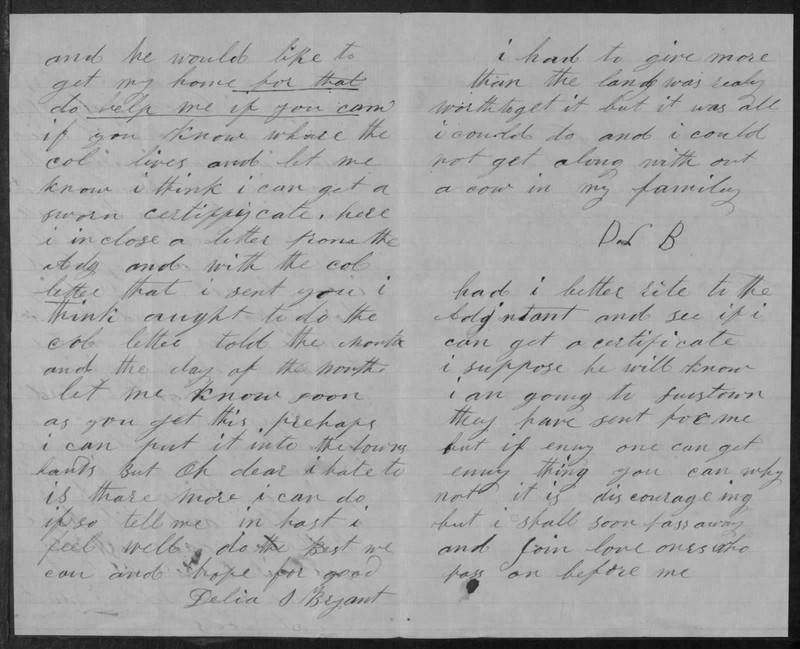 and he would like to
get my home for that
do help me if you can
if you know whare the
col lives and let me
know i think i can get a
sworn certiffycate, here
i inclose a letter from the
Adg and with the col
letter that i sent you i
think aught to do the
col letter told the month
and the day of the month
let me know soon
as you get this, prehaps
i can put it into the towns
hands But Oh dear i hate to
is thare more i can do
if so tell me in hast i
feel well do the best we
can and hope for good
Delia S Bryant
i had to give more
than the land was realy
worth to get it but it was all
i could do and i could
not get along with out
a cow in my family
D S B
had i better rite to the
Adjntant and see if i
can get a certificate
i suppose he will know
i am going to
they have sent for me
but if enny one can get
enny thing you can why
not it is discourageing
but i shall soon pass away
and join love ones who
pass on before me